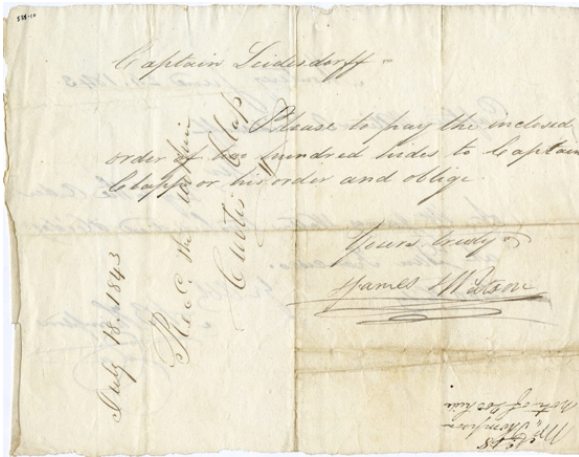 Captain Leidesdorff
Please to pay the inclosed
order of two hundred hides to Captain
Clapp or his order and oblige
Yours truly
James Watson
July 18th 1843
Recd the within
Curtis Clap
Mr Thompson